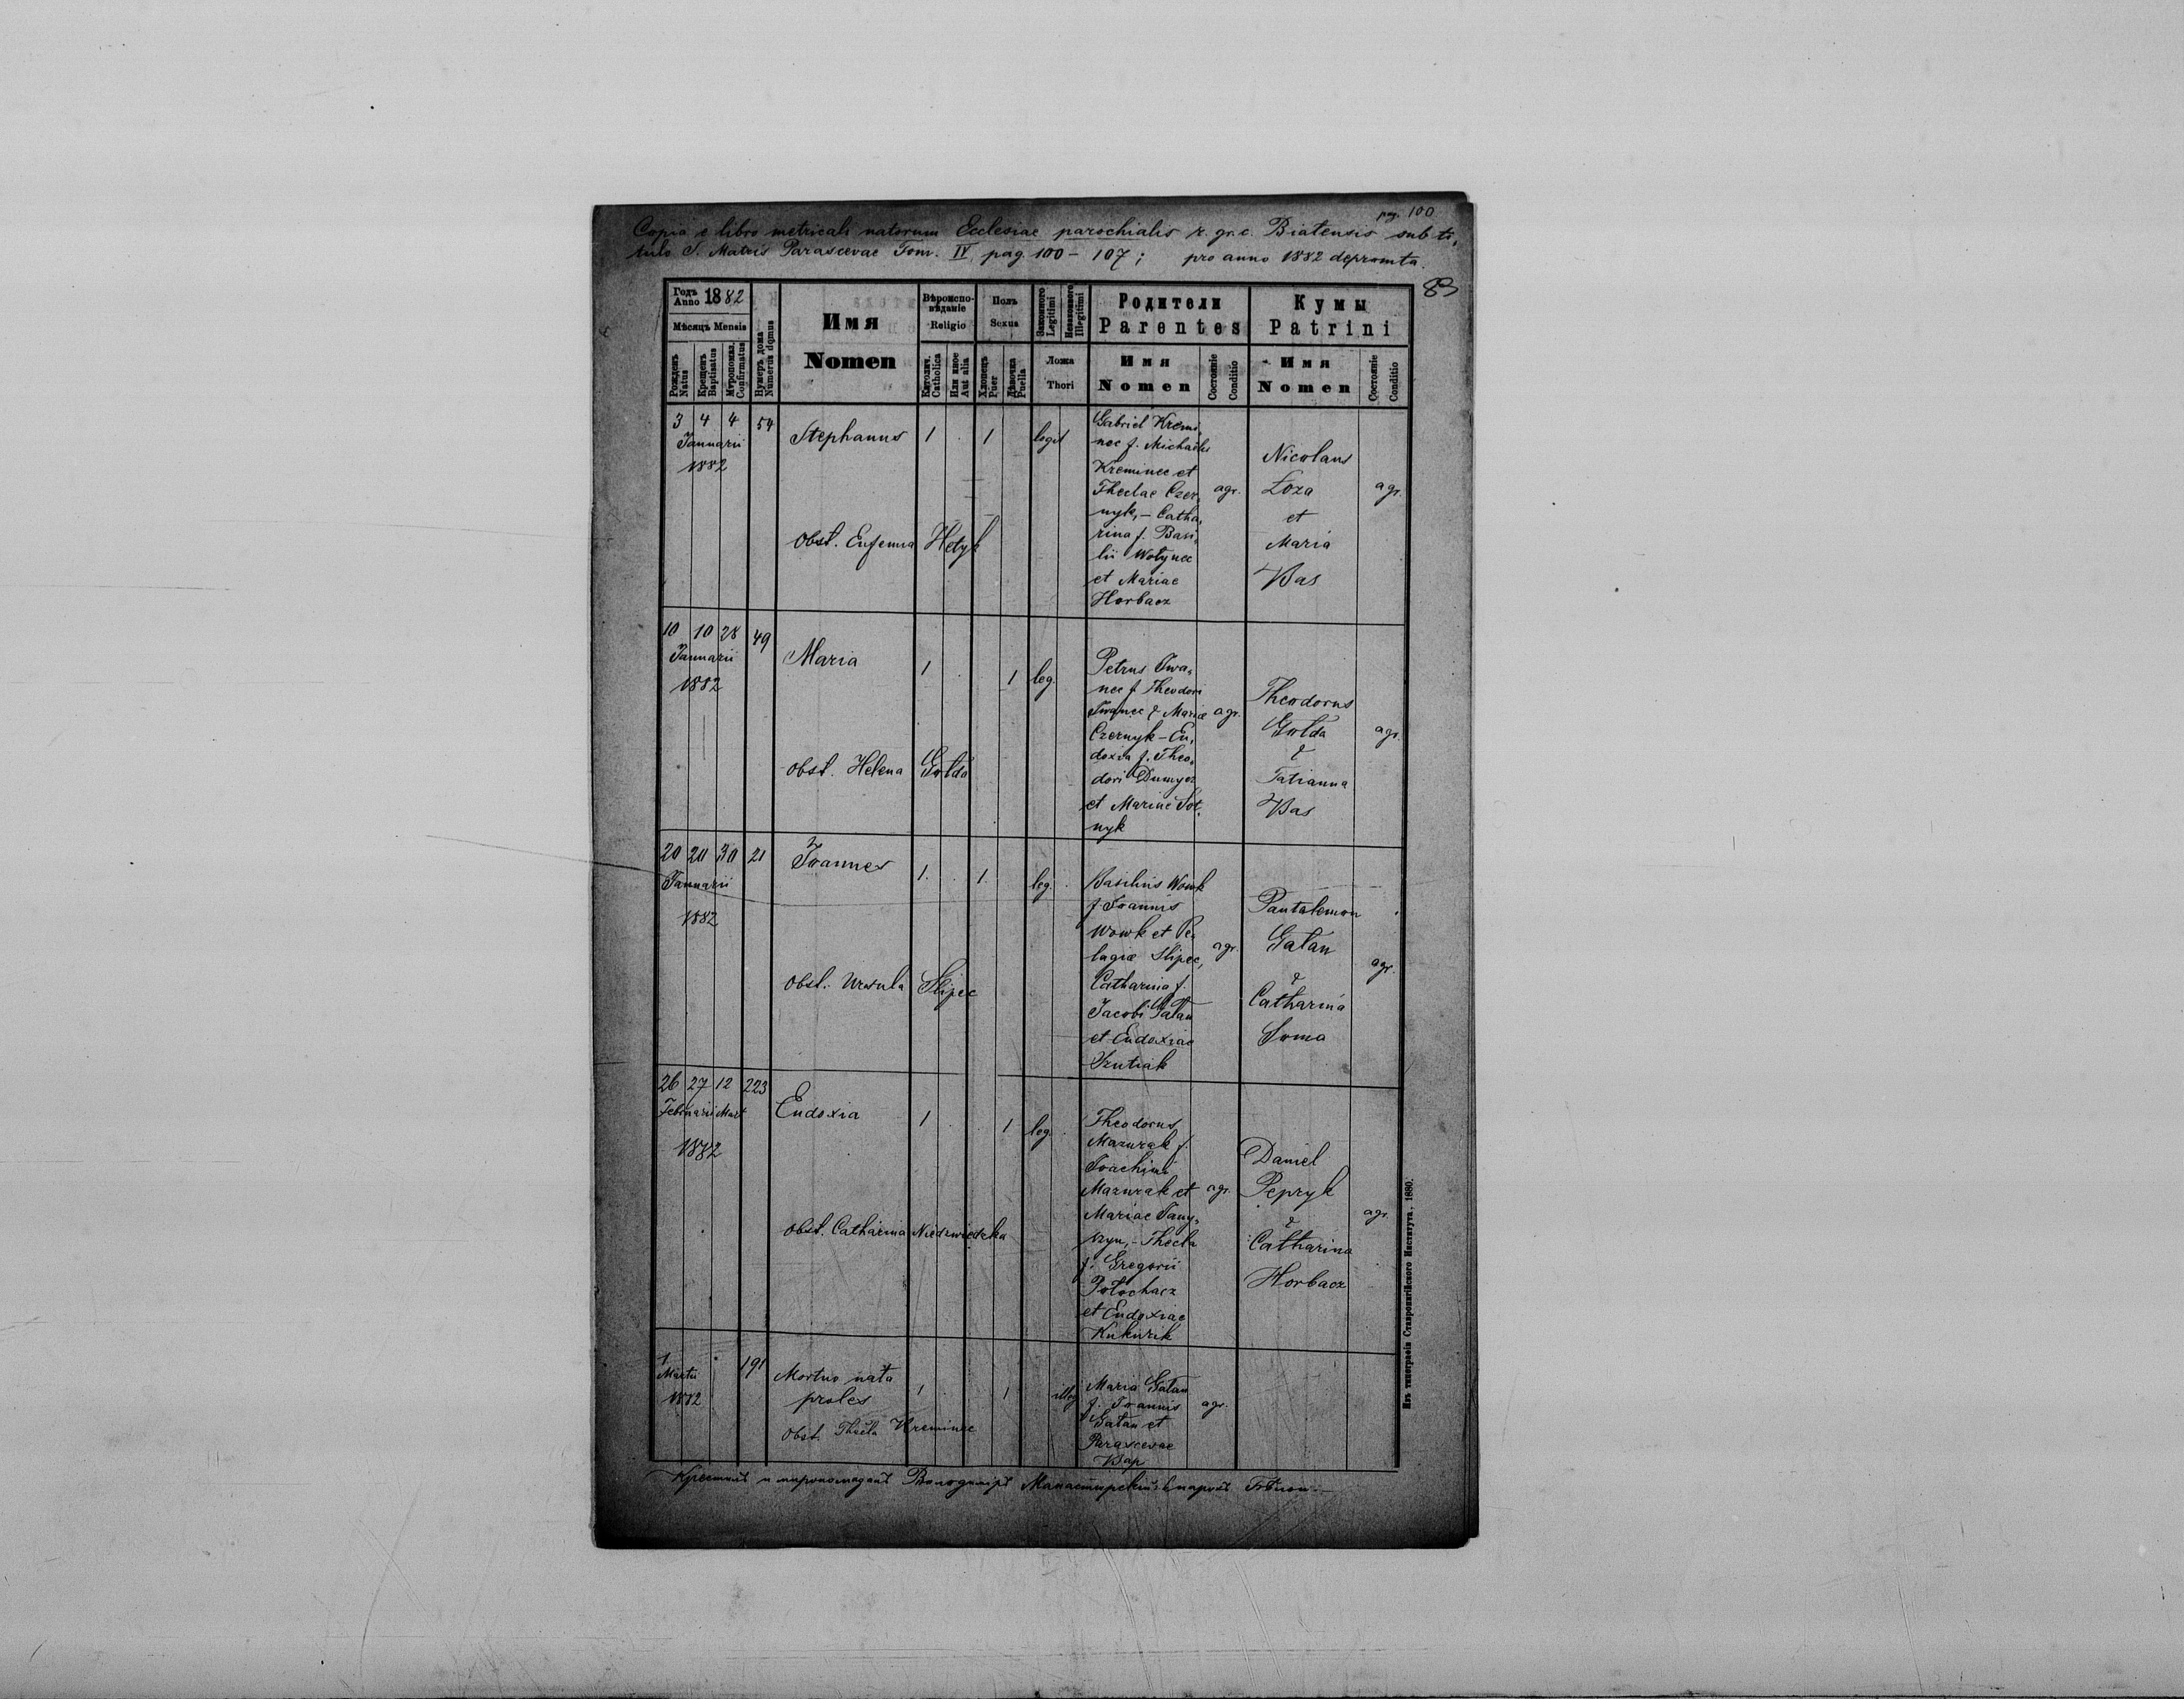 pag. 100
Copia e libro metricali natorum Ecclesiae parochialis r. gr. c. Biatensis sub ti,
tulo S. Matris Parascevae Tom. IV pag. 100 - 107; pro anno 1882 depromta.
83
Годъ Anno 1882
Мѣсяць Mensis
Рожденъ Natus
Крещенъ Baptisatus
Мѵропомаз. Confirmatus
Нумеръ дома Numerus domus
Имя
Nomen
Вѣроиспо-
вѣданіе
Religio
Католич. Catholica
Или иное Aut alia
Полъ
Sexus
Хлопецъ Puer
Дѣвочка Puella
Законного Legitimi
Незаконного Illegitimi
Ложа
Thori
Родители
Parentes
Имя
Nomen
Состояніе Conditio
Кумы
Patrini
Имя
Nomen
Состояніе Conditio
3 4 4 54
Januarii
1882
Stephanus
1 . 1 legit
Obst. Eufemia Hetyk
Gabriel Kremi,
nec f. Michaelis
Kreminec et
Theclae Czer,
nyk, - Catha,
rina f. Basi,
lii Wołynec
et Mariae
Horbacz
agr.
Nicolaus
Łoza
et
Maria
Bas
agr.
10 10 28 49
Januarii
1882
Maria
1 . 1 leg.
obst. Helena Gołda
Petrus Iwa,
nec f. Theodori
Iwanec & Mariæ
Czernyk - Eu,
doxia f. Theo,
dori Dumycz
et Marine Sot,
nyk
agr.
Theodorus
Gołda
&
Tatianna
Bas
agr.
20 20 30 21
Januarii
1882
Joannes
1. . 1. leg.
obst. Ursula Slipec
Basilius Wowk
f. Joannis
Wowk et Pe,
lagiæ Slipec,
Catharina f.
Jacobi Gałan
et Eudoxiae
agr.
Pantalemon
Gałan
&
Catharina
Soma
agr.
26 27 12 223
Februarii Mart
1882
Eudoxia
1 . . 1 leg.
obst. Catharina Niedzwiedzka
Theodorus
Mazurak f.
Joachimi
Mazurak et
Mariae Pany,
szyn, - Thecla
f. Gregorii
Potochacz
et Eudoxiae
Kukurik
agr.
Daniel
Pepryk
&
Catharina
Horbacz
agr.
1 191
Martii
1882
Mortuo nata
proles
1 1 illeg
obst. Thecla Kreminec
Maria Gałan
f. Joannis
Gałan et
Parascevae
Bap
agr.
Крестилъ и миропомазалъ Володимiръ Манастирскiй
Изъ типографіи Ставропигійского Института. 1880.